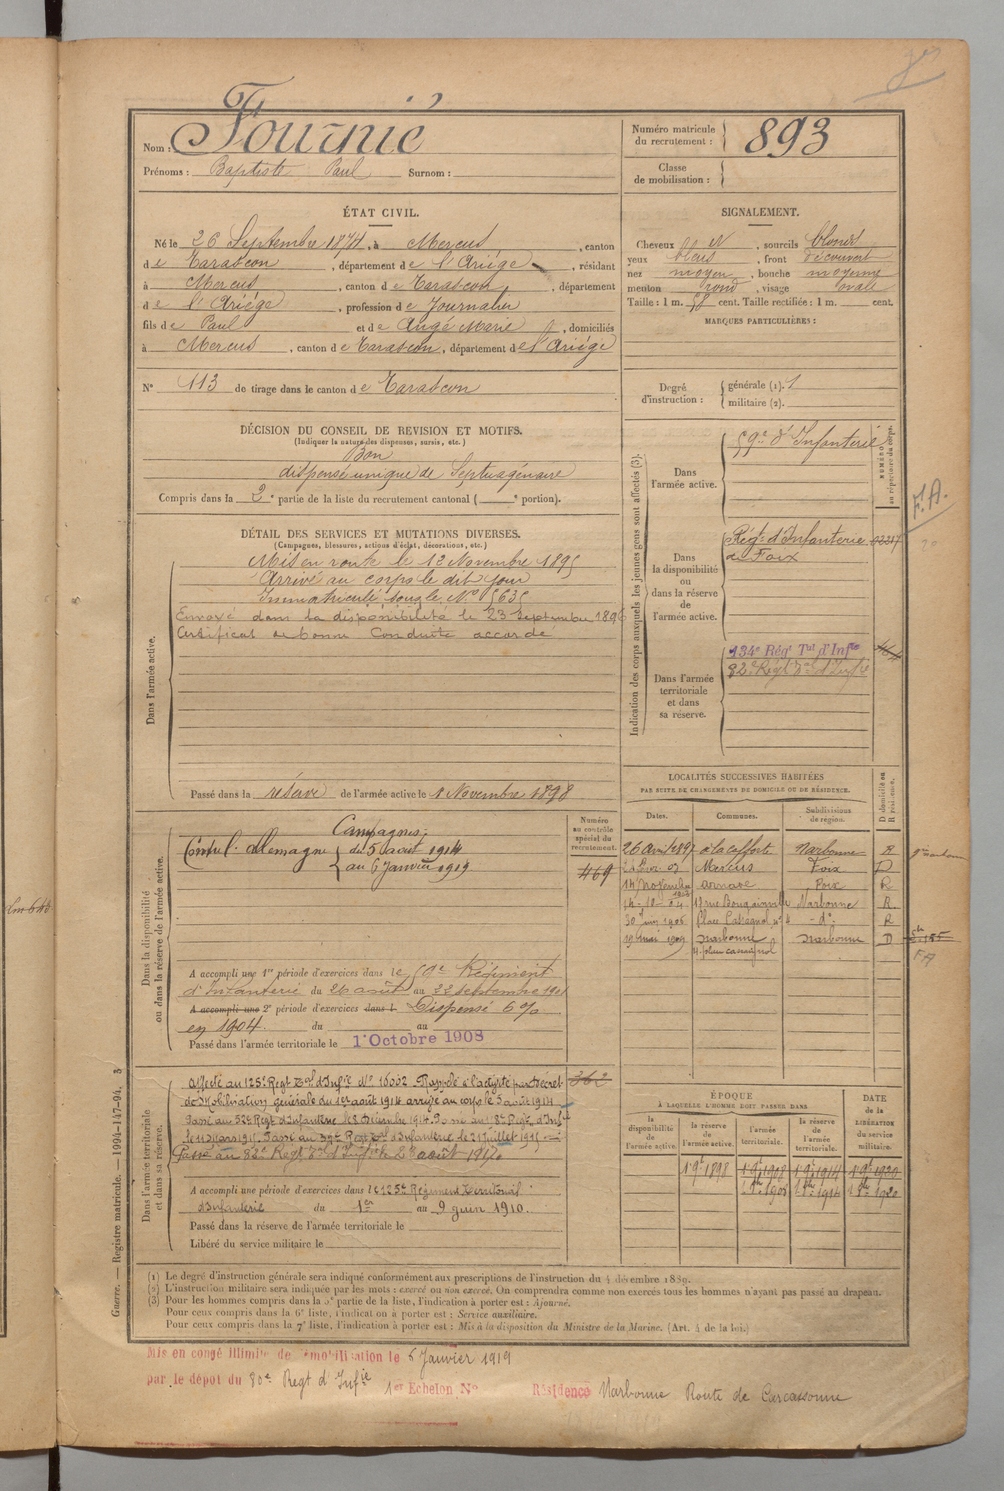 Nom : Fournié
Prénoms : Baptiste Paul Surnom :
Numéro matricule du recrutement : 893
Classe de mobilisation :
ÉTAT CIVIL.
Né le 26 Septembre 1874, à Mercus, canton
de Tarascon, département de l'Ariège, résidant
à Mercus, canton de Tarascon, département
de l'Ariège, profession de Journalier
fils de Paul et de Ange Marie, domiciliés
à Mercus, canton de Tarascon, département de l'Ariège
N° 113 de tirage dans le canton de Tarascon
SIGNALEMENT.
Cheveux bl, sourcils blonds
yeux bleus, front découvert
nez moyen, bouche moyenne
menton rond, visage ovale
Taille : 1 m. 58 cent. Taille rectifiée : 1 m. cent.
MARQUES PARTICULIÈRES :
Degré d'instruction :
générale (1). 1
militaire (2).
DÉCISION DU CONSEIL DE REVISION ET MOTIFS.
(Indiquer la nature des dispenses, sursis, etc.)
Bon
dispensé unique de Septuagénaire
Compris dans la 2e partie de la liste du recrutement cantonal ( e portion).
DÉTAIL DES SERVICES ET MUTATIONS DIVERSES.
(Campagnes, blessures, actions d'éclat, décorations, etc.)
Dans l'armée active.
Mis en route le 12 Novembre 1895
Arrivé au corps le dit jour
Immatriculé sous le N° 5635
Envoyé dans la disponibilité le 23 Septembre 1896
Certificat de bonne Conduite accordé
Passé dans la réserve de l'armée active le 1 Novembre 1898
Indication des corps auxquels les jeunes gens sont affectés (3).
NUMÉRO au répertoire du corps.
Dans l'armée active.
59e d'Infanterie
Dans la disponibilité ou dans la réserve de l'armée active.
Régt d'Infanterie
de Foix
F.A.
Dans l'armée territoriale et dans sa réserve.
134e Régt Tal d'Infie
82e Régt Tal d'Infie
LOCALITÉS SUCCESSIVES HABITÉES
PAR SUITE DE CHANGEMENTS DE DOMICILE OU DE RÉSIDENCE.
Dates. Communes. Subdivisions de région. D domicile ou R résidence.
26 Avril 1897 Narbonne R
Mercus Foix D
14 Novembre Arnave Foix R
14-10-04 17 rue Bougainville Narbonne R
30 Juin 1906 Place Cassaignol n° 4 - d° R
19 mai 1909 Narbonne Narbonne D
Dans la disponibilité ou dans la réserve de l'armée active.
Numéro au contrôle spécial du recrutement.
Campagnes :
Contre l'Allemagne du 5 août 1914
au 6 Janvier 1919
469
A accompli une 1re période d'exercices dans le 59e Régiment
d'Infanterie du 26 août au 22 septembre 1901
A accompli une 2e période d'exercices dans l Dispensé 6%
en 1904 du au
Passé dans l'armée territoriale le 1er Octobre 1908
Dans l'armée territoriale et dans sa réserve.
Affecté au 125e Régt Tal d'Infie N° 16002 Rappelé à l'activité par Décret
de Mobilisation générale du 1er août 1914 arrivé au corps le 5 août 1914
362
Passé au 39e Régt Tal d'Infanterie le 21 juillet 1915
Passé au 82e Régt Tal d'Infie le août
A accompli une période d'exercices dans le 125e Régiment Territorial
d'Infanterie du 1er au 9 juin 1910.
Passé dans la réserve de l'armée territoriale le
Libéré du service militaire le
ÉPOQUE
À LAQUELLE L'HOMME DOIT PASSER DANS
la disponibilité de l'armée active. la réserve de l'armée active. l'armée territoriale. la réserve de l'armée territoriale. DATE de la LIBÉRATION du service militaire.
1 9e 1898 1 9e 1908 1 9e 1914 1 9e 1920
(1) Le degré d'instruction générale sera indiqué conformément aux prescriptions de l'instruction du 4 décembre 1889.
(2) L'instruction militaire sera indiquée par les mots : exercé ou non exercé. On comprendra comme non exercés tous les hommes n'ayant pas passé au drapeau.
(3) Pour les hommes compris dans la 5e partie de la liste, l'indication à porter est : Ajourné.
Pour ceux compris dans la 6e liste, l'indication à porter est : Service auxiliaire.
Pour ceux compris dans la 7e liste, l'indication à porter est : Mis à la disposition du Ministre de la Marine. (Art. 4 de la loi.)
Guerre. — Registre matricule. — 1994-147-94. 3
Mis en congé illimité de démobilisation le 6 Janvier 1919
par le dépôt du 80e Regt d'Infie 1er Echelon N° Résidence Narbonne Route de Carcassonne